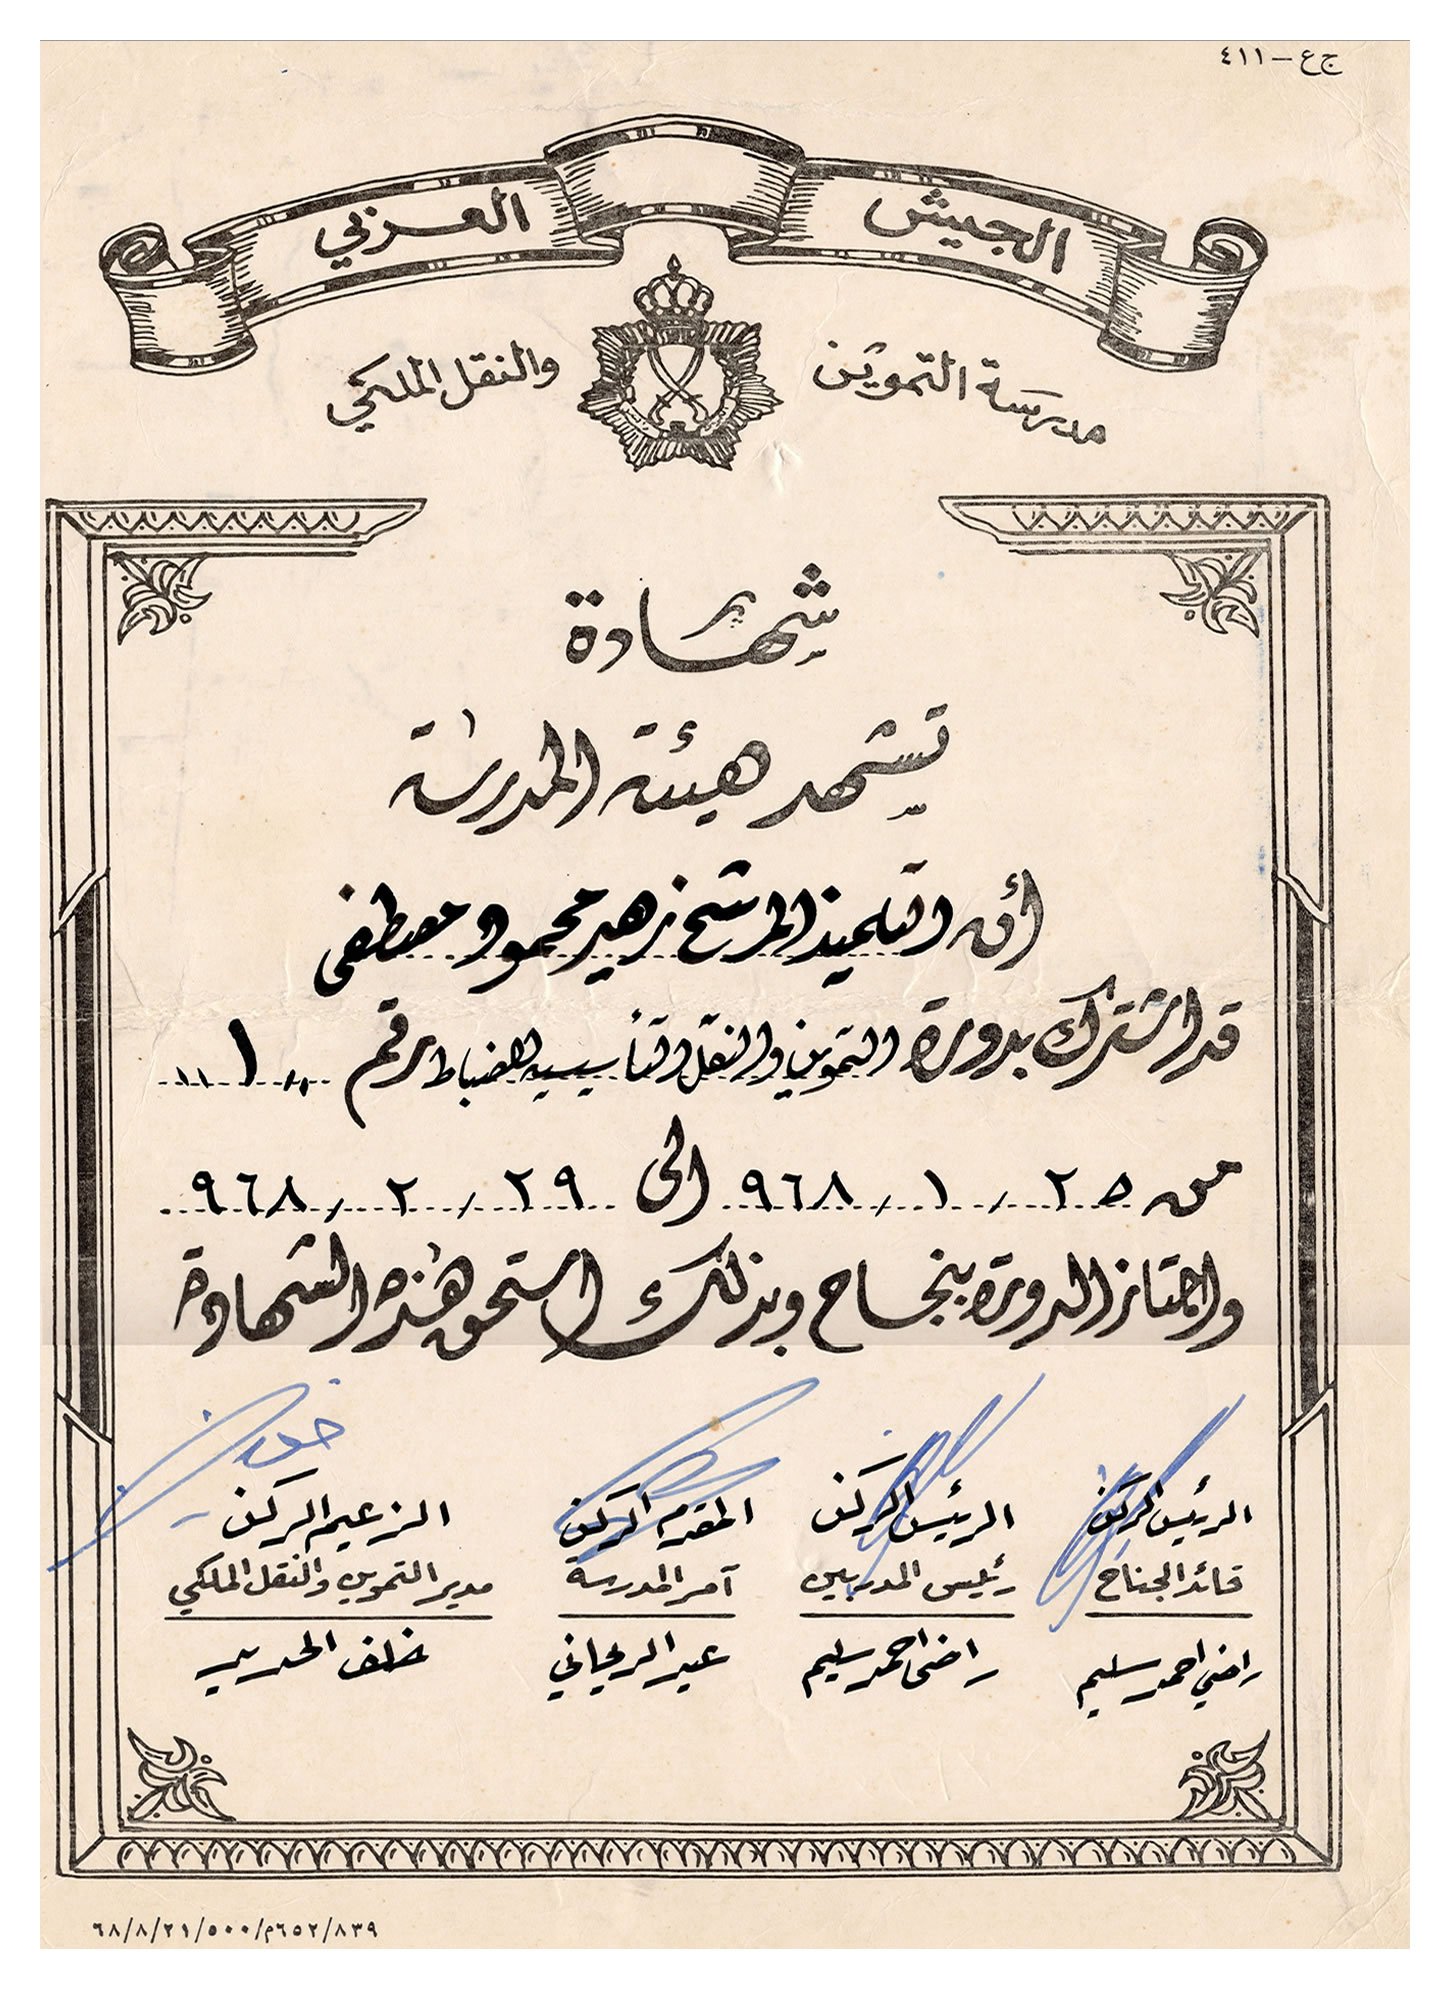 ج ع – ٤١١
الجيش العربي
مدرسة التموين والنقل الملكي
شهادة
تشهد هيئة المدرسة
أن التلميذ المرشح زهير محمود مصطفى
قد اشترك بدورة التموين والنقل التأسيسيه للضباط رقم ١
من ٢٥ / ١ / ٩٦٨ الى ٢٩ / ٢ / ٩٦٨
واجتاز الدورة بنجاح وبذلك استحق هذه الشهادة
الرئيس الركن الرئيس الركن المقدم الركن الزعيم الركن
قائد الجناح رئيس المدربين آمر المدرسة مدير التموين والنقل الملكي
راضي احمد سليم راضي احمد سليم عيد الريحاني خلف
٦٨/٨/٢١/٥٠٠/م٦٥٢/٨٣٩